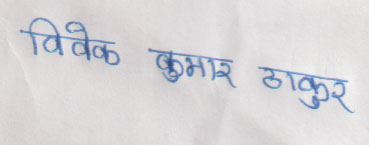 विवेक कुमार ठाकुर